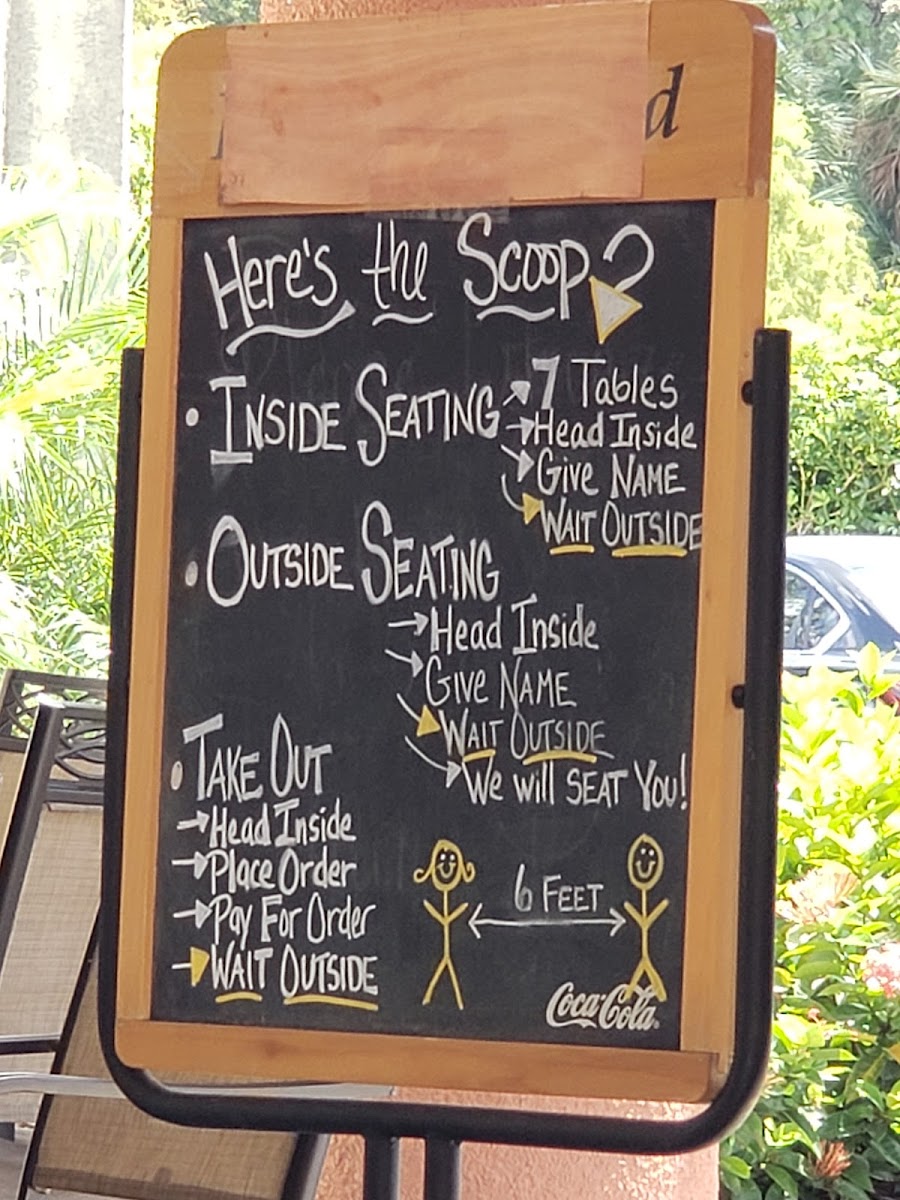 d
Here's the Scoop?
• INSIDE SEATING → 7 Tables
→ Head Inside
→ Give NAME
→ WAIT OUTSIDE
• OUTSIDE SEATING
→ Head Inside
→ Give NAME
→ WAIT OUTSIDE
→ We will SEAT You!
• TAKE OUT
→ Head Inside
→ Place Order
→ Pay For Order
→ WAIT OUTSIDE
6 FEET
Coca-Cola